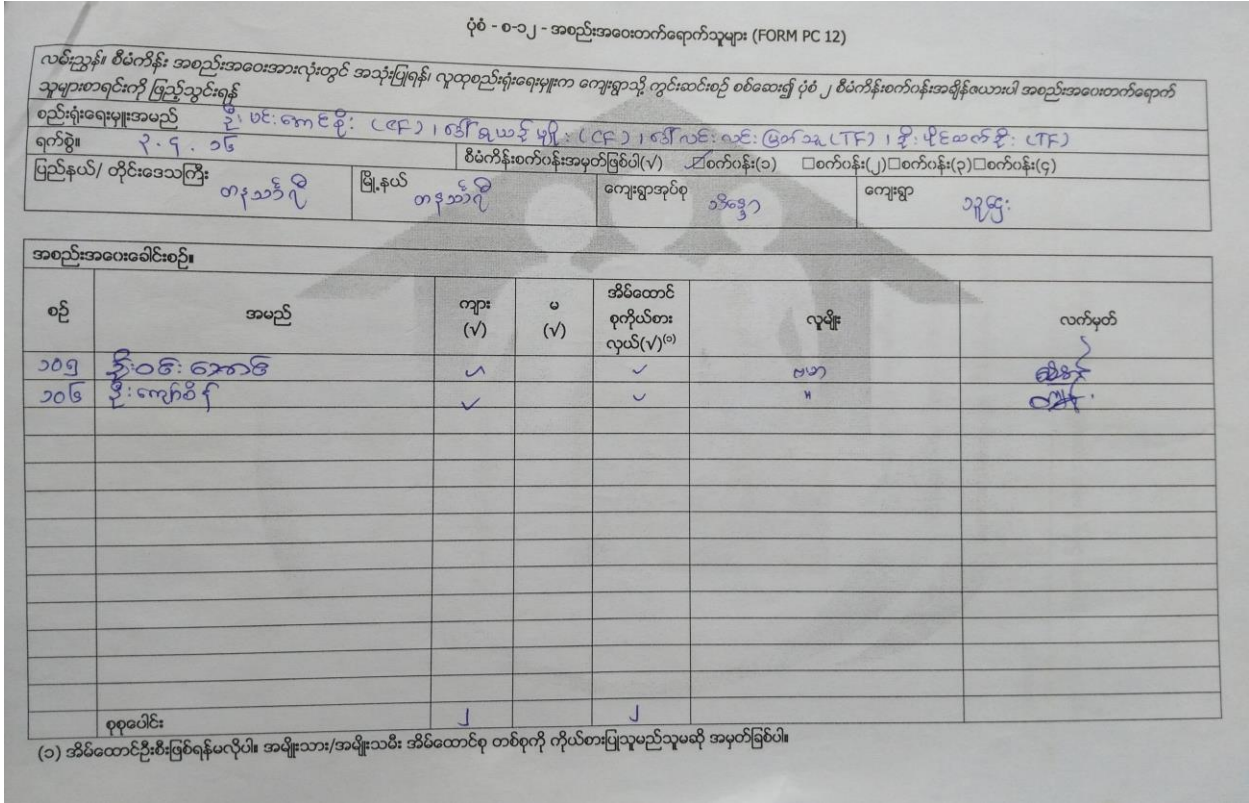 ပုံစံ - စ-၁၂ - အစည်းအဝေးတက်ရောက်သူများ (FORM PC 12)
လမ်းညွှန်။ စီမံကိန်း အစည်းအဝေးအားလုံးတွင် အသုံးပြုရန်၊ လူထုစည်းရုံးရေးမှူးက ကျေးရွာသို့ ကွင်းဆင်းစဉ် စစ်ဆေး၍ ပုံစံ ၂ စီမံကိန်းစက်ဝန်းအချိန်ဇယားပါ အစည်းအဝေးတက်ရောက်
သူများစာရင်းကို ဖြည့်သွင်းရန်
စည်းရုံးရေးမှူးအမည် ဦး မင်းအောင်စိုး (CF) ၊ ဒေါ် (CF) ၊ ဒေါ်လင်းလင်းမြတ်သူ (TF) ၊ ဦးပိုင်ထက်စိုး (TF)
ရက်စွဲ။ ၃.၇.၁၆ စီမံကိန်းစက်ဝန်းအမှတ်ဖြစ်ပါ(√) ☑စက်ဝန်း(၁) □စက်ဝန်း(၂)□စက်ဝန်း(၃)□စက်ဝန်း(၄)
ပြည်နယ်/ တိုင်းဒေသကြီး တနင်္သာရီ မြို့နယ် တနင်္သာရီ ကျေးရွာအုပ်စု သိန္ဒော ကျေးရွာ
အစည်းအဝေးခေါင်းစဉ်။
စဉ် အမည် ကျား (√) မ (√) အိမ်ထောင် စုကိုယ်စား လှယ်(√)⁽¹⁾ လူမျိုး လက်မှတ်
၁၀၅ ဦးဝင်းအောင် ✓ ✓ ဗမာ
၁၀၆ ဦးကျော်စိန် ✓ ✓ "
စုစုပေါင်း ၂ ၂
(၁) အိမ်ထောင်ဦးစီးဖြစ်ရန်မလိုပါ။ အမျိုးသား/အမျိုးသမီး အိမ်ထောင်စု တစ်စုကို ကိုယ်စားပြုသူမည်သူမဆို အမှတ်ခြစ်ပါ။